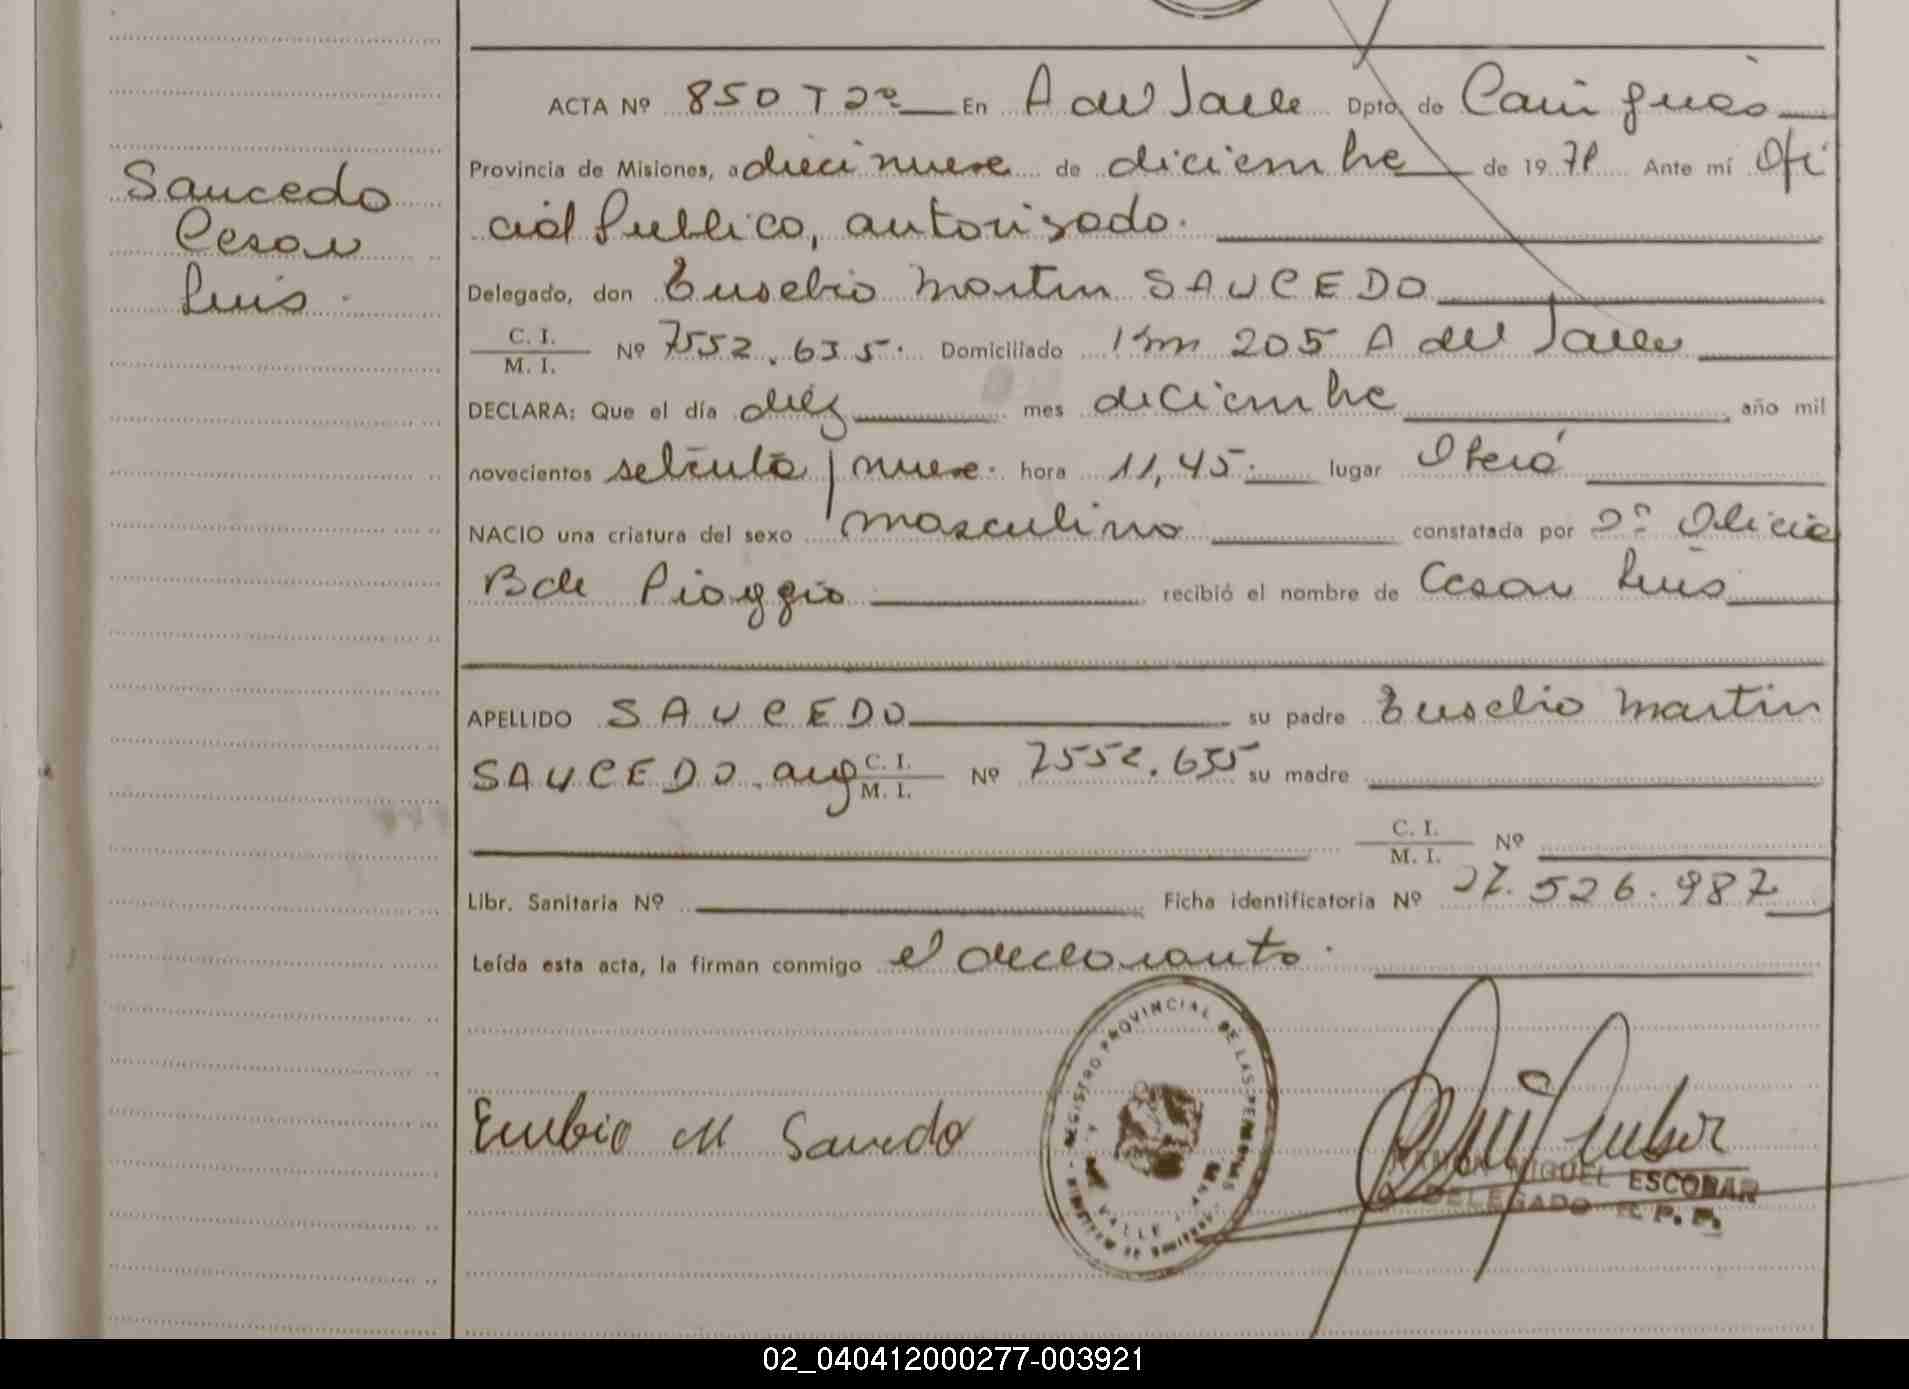 Saucedo
Cesar
Luis.
ACTA Nº 850 T 2º En A del Valle Dpto. de Cainguás
Provincia de Misiones, a diecinueve de diciembre de 1979 Ante mí Ofi
cial Publico, autorizado.
Delegado, don Eusebio Martin SAUCEDO
C. I.
M. I. Nº 7552.635. Domiciliado Km 205 A del Valle
DECLARA: Que el día diez mes diciembre año mil
novecientos setenta / nueve. hora 11,45. lugar Oberá
NACIO una criatura del sexo masculino constatada por Dª Alicia
B de Pioggio recibió el nombre de Cesar Luis
APELLIDO SAUCEDO su padre Eusebio Martin
SAUCEDO. arg C. I.
M. I. Nº 7552.635 su madre
C. I.
M. I. Nº
Libr. Sanitaria Nº Ficha identificatoria Nº 27.526.987
Leída esta acta, la firman conmigo el declarante.
REGISTRO PROVINCIAL DE LAS PERSONAS
VALLE
Eusebio M Saucedo
RAMON MIGUEL ESCOBAR
DELEGADO R. P. P.
02_040412000277-003921